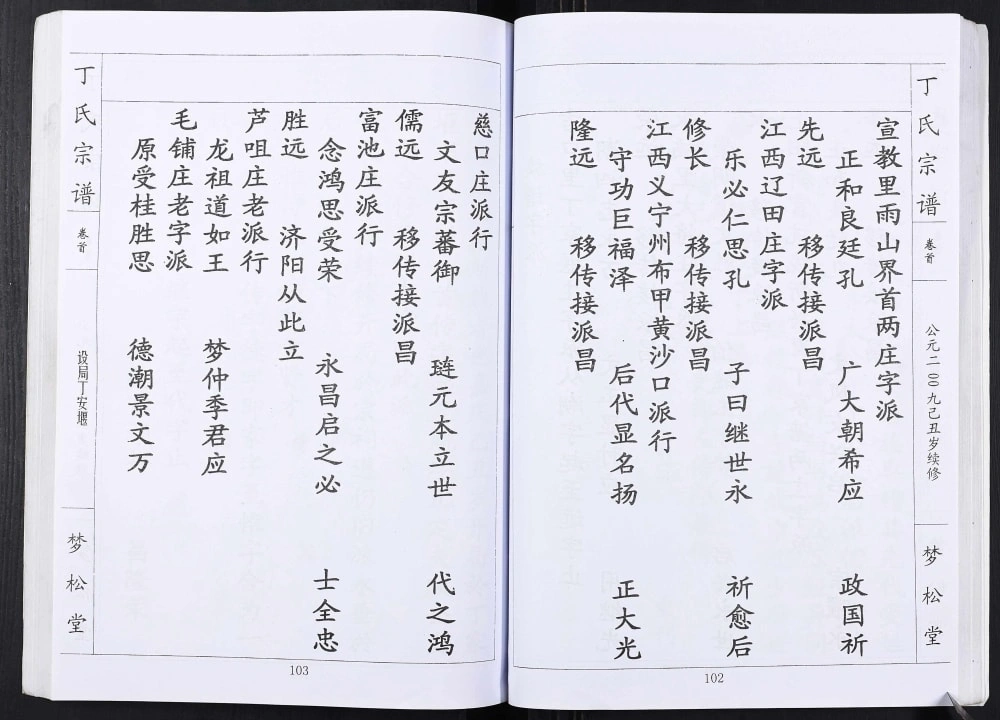 丁氏宗谱
卷首
公元二〇〇九己丑岁续修
梦松堂
宣教里雨山界首两庄字派
正和良廷孔 广大朝希应 政国祈
先远 移传接派昌
江西辽田庄字派
乐必仁思孔 子曰继世永 祈愈后
修长 移传接派昌
江西义宁州布甲黄沙口派行
守功巨福泽 后代显名扬 正大光
隆远 移传接派昌
102
慈口庄派行
文友宗蕃御 琏元本立世 代之鸿
儒远 移传接派昌
富池庄派行
念鸿思受荣 永昌启之必 士全忠
胜远 济阳从此立
芦咀庄老派行
龙祖道如王 梦仲季君应
毛铺庄老字派
原受桂胜思 德潮景文万
丁氏宗谱
卷首
设局丁安堰
梦松堂
103